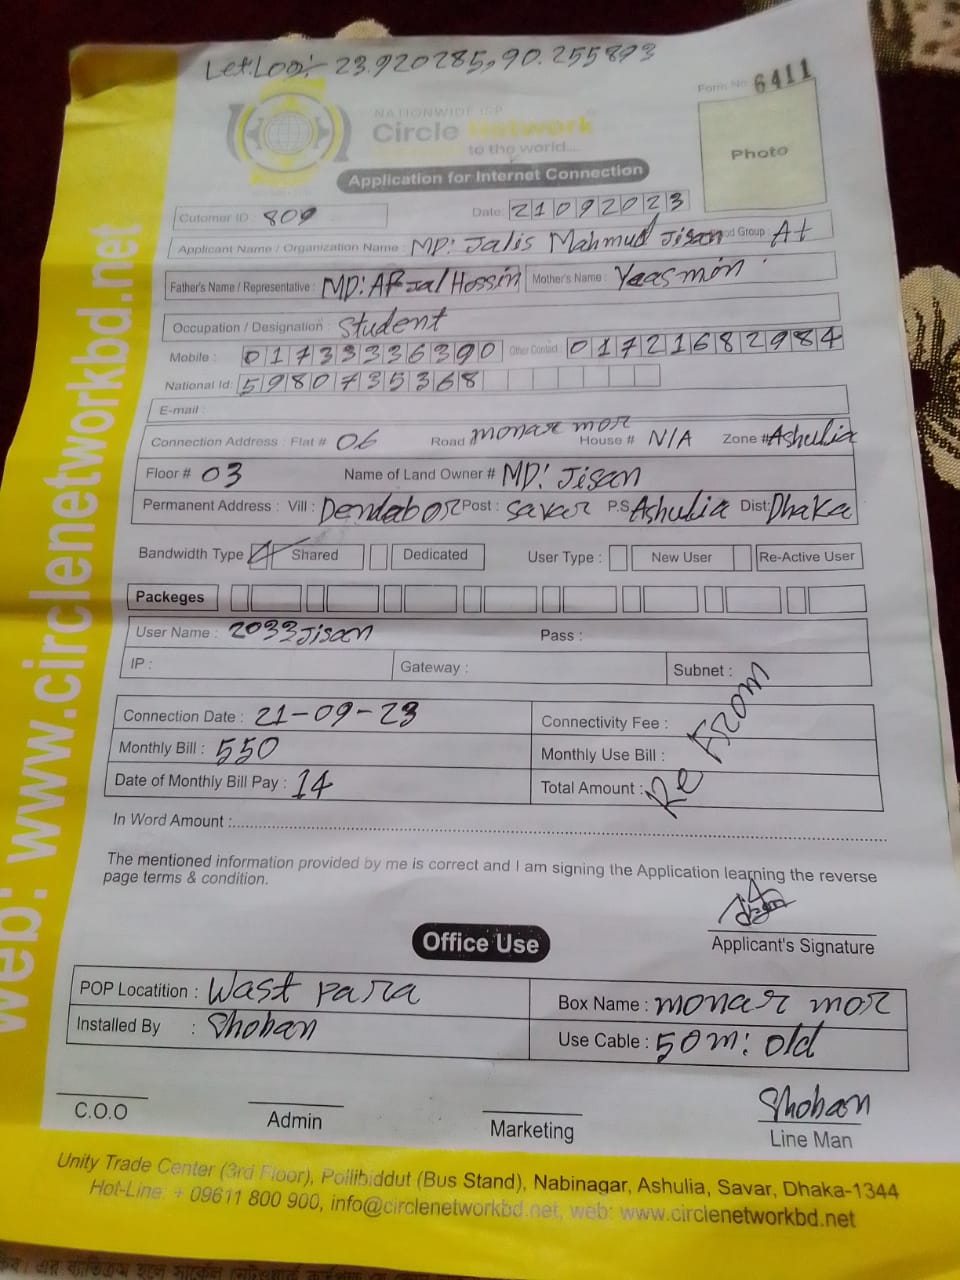 Let:Log:- 23.920285,90.255893
Form No 6411
NATIONWIDE ISP
Circle Network
to the world...
Photo
Application for Internet Connection
Cutomer ID : 809 Date: 21092023
Applicant Name / Organization Name : MD: Jalis Mahmud Jisan od Group : A+
Father's Name / Representative : MD: AFzal Hossin Mother's Name : Yeasmin
Occupation / Designation : Student
Mobile : 01733336390 Other Contact 01721682984
National Id: 5980735368
E-mail :
Connection Address : Flat # 06 Road monar mor House # N/A Zone # Ashulia
Floor # 03 Name of Land Owner # MD: Jisan
Permanent Address : Vill : Dendabor Post : Savar P.S Ashulia Dist: Dhaka
Bandwidth Type Shared Dedicated User Type : New User Re-Active User
Packeges
User Name : 2033Jisan Pass :
IP : Gateway : Subnet :
Connection Date : 21-09-23 Connectivity Fee :
Monthly Bill : 550 Monthly Use Bill :
Date of Monthly Bill Pay : 14 Total Amount :
Re
In Word Amount :
The mentioned information provided by me is correct and I am signing the Application learning the reverse
page terms & condition.
Applicant's Signature
Office Use
POP Locatition : Wast para Box Name : monar mor
Installed By : Shohan Use Cable : 50m: old
Shohan
C.O.O Admin Marketing Line Man
Unity Trade Center (3rd Floor), Pollibiddut (Bus Stand), Nabinagar, Ashulia, Savar, Dhaka-1344
Hot-Line: + 09611 800 900, info@circlenetworkbd.net, web: www.circlenetworkbd.net
web: www.circlenetworkbd.net